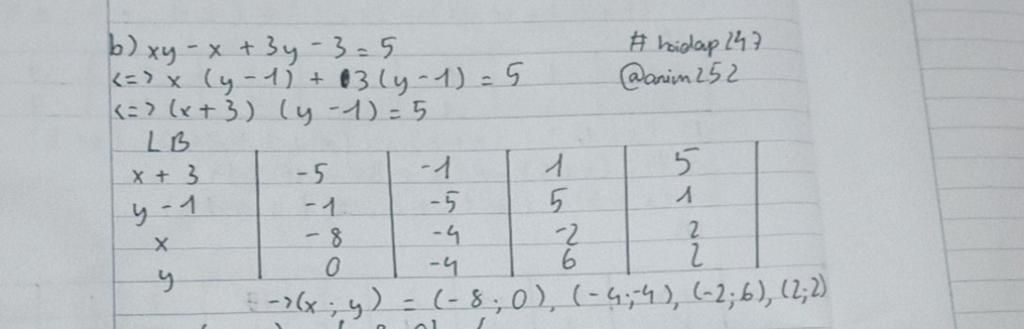 b) xy - x + 3y - 3 = 5
# hoidap247
<=> x (y - 1) + 3(y - 1) = 5
@anim252
<=> (x + 3) (y - 1) = 5
LB
x + 3 | -5 | -1 | 1 | 5 |
y - 1 | -1 | -5 | 5 | 1 |
x | -8 | -4 | -2 | 2 |
y | 0 | -4 | 6 | 2 |
->(x ; y) = (-8 ; 0), (-4;-4), (-2;6), (2;2)